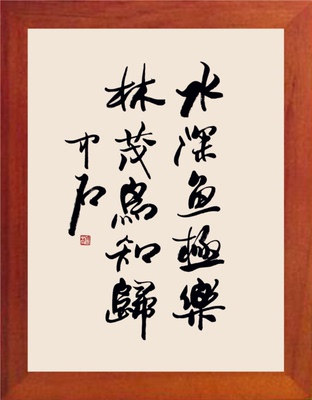 水深魚極樂
林茂鳥知歸
中石